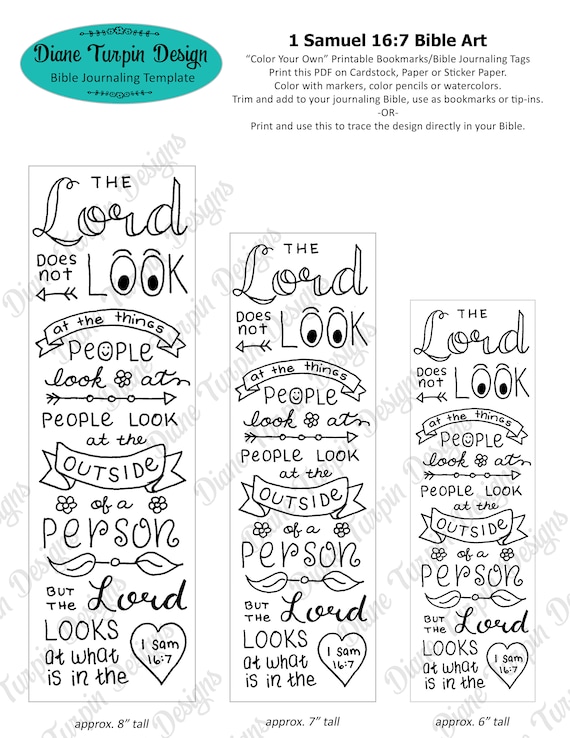 Diane Turpin Design
Bible Journaling Template
1 Samuel 16:7 Bible Art
“Color Your Own” Printable Bookmarks/Bible Journaling Tags
Print this PDF on Cardstock, Paper or Sticker Paper.
Color with markers, color pencils or watercolors.
Trim and add to your journaling Bible, use as bookmarks or tip-ins.
-OR-
Print and use this to trace the design directly in your Bible.
THE
Lord
DOES
not LOOK
at the things
PEOPLE
look at
PEOPLE LOOK
at the
OUTSIDE
of a
PERSON
BUT
THE Lord
LOOKS
at what
is in the
1 Sam
16:7
approx. 8” tall
THE
Lord
DOES
not LOOK
at the things
PEOPLE
look at
PEOPLE LOOK
at the
OUTSIDE
of a
PERSON
BUT
THE Lord
LOOKS
at what
is in the
1 Sam
16:7
approx. 7” tall
THE
Lord
DOES
not LOOK
at the things
PEOPLE
look at
PEOPLE LOOK
at the
OUTSIDE
of a
PERSON
BUT
THE Lord
LOOKS
at what
is in the
1 Sam
16:7
approx. 6” tall
Diane Turpin Designs